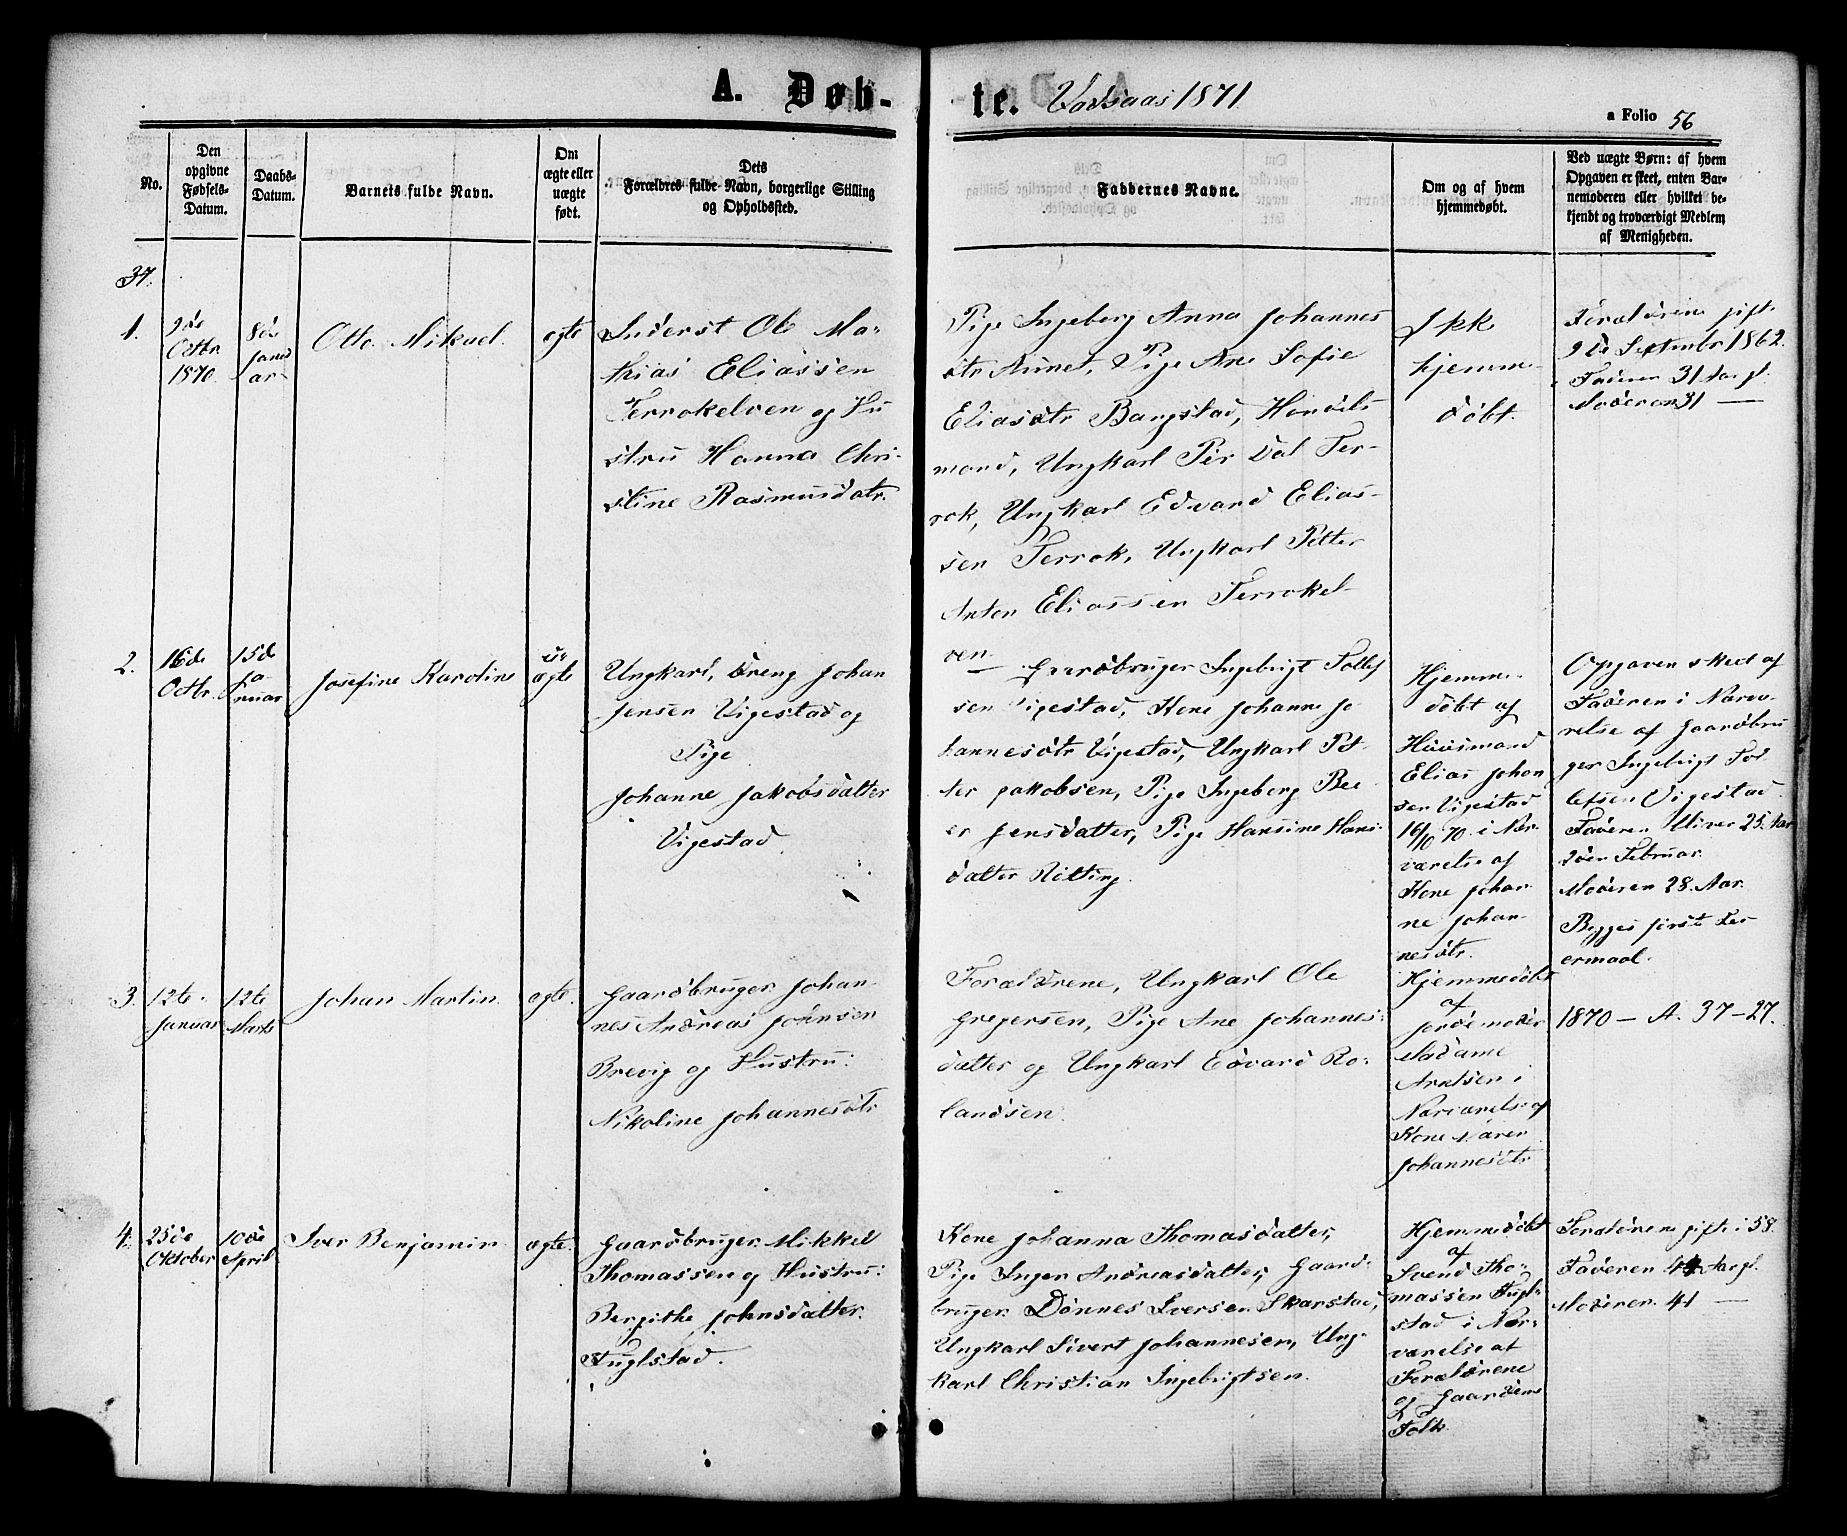 A. Døb-
te. Vadsaas 1871
a Folio 56
No.
Den
opgivne
Fødsels-
Datum.
Daabs-
Datum.
Barnets fulde Navn.
Om
ægte eller
uægte
født.
Dets
Forældres fulde Navn, borgerlige Stilling
og Opholdssted.
Faddernes Navne.
Om og af hvem
hjemmedøbt.
Ved uægte Børn: af hvem
Opgaven er skeet, enten Bar-
nemoderen eller hvilket be-
kjendt og troværdigt Medlem
af Menigheden.
37.
1.
9de
Octbr.
1870.
8de
Janu
ar
Otto Mikael.
ægte
Inderst Ole Ma-
thias Eliassen
Terrokelven og Hu
stru Hanna Chri-
stine Rasmusdatr.
Pige Ingeberg Anna Johannes
dtr Aunet, Pige Ane Sofie
Eliasdtr Bangstad, Handels
mand, Ungkarl Per Dal Ter-
rok, Ungkarl Edvard Elias-
sen Terrok, Ungkarl Petter
Anton Eliassen Terrokel-
ven
Ikk
hjemme-
døbt.
Forældrene gift
9de Septembr 1862.
Faderen 31 Aar gl.
Moderen 31 —
2.
16de
Octbr.
15de
Ja
nuar
Josefine Karoline
u-
ægte
Ungkarl, Dreng Johan
Jensen Vigestad og
Pige
Johanne Jakobsdatter
Vigestad.
Gaardbruger Ingebrigt Tollef
sen Vigestad, Kone Johanne Jo
hannesdtr Vigestad, Ungkarl Pet-
ter Jakobsen, Pige Ingeberg Be
er Jensdatter, Pige Hansine Hans-
datter Nilting.
Hjemme-
døbt af
Huusmand
Elias Johan
sen Vigestad
16/10 70. i Nær-
værelse af
Kone Johan-
ne Johan-
nesdtr.
Opgaven skeet af
Faderen i Nærvæ-
relse af Gaardbru
ger Ingebrigt Tol
lefsen Vigestad.
Faderen bliver 25. Aar
2den Februar.
Moderen 28. Aar.
Begges første Lei
ermaal.
3.
12te
Januar
12te
Marts
Johan Martin.
ægte.
Gaardbruger Johan-
nes Andreas Johnsen
Brevig og Hustru:
Nikoline Johannesdtr
Forældrene, Ungkarl Ole
Gregersen, Pige Ane Johannes-
datter og Ungkarl Edvard Ro-
landsen.
Hjemmedøbt
af
Jordemoder
Madame
Arntsen i
Nærværelse af
Kone Maren
Johannesdtr
1870 — A. 37-27.
4.
25de
Oktober
10de
April.
Iver Benjamin
ægte.
Gaardbruger Mikkel
Thomassen og Hustru:
Bergithe Johnsdatter
Fuglstad.
Kone Johanna Thomasdatter,
Pige Inger Andreasdatter, Gaard-
bruger Dønnes Iversen Skarstad,
Ungkarl Sivert Johannesen, Ung-
karl Christian Ingebrigtsen.
Hjemmedøbt
af
Svend Tho-
massen Fugl-
stad i Nær-
værelse af
Forældrene
og Gaardens
Folk.
Forældrene gift i 58.
Faderen 44 Aar gl.
Moderen 41 —